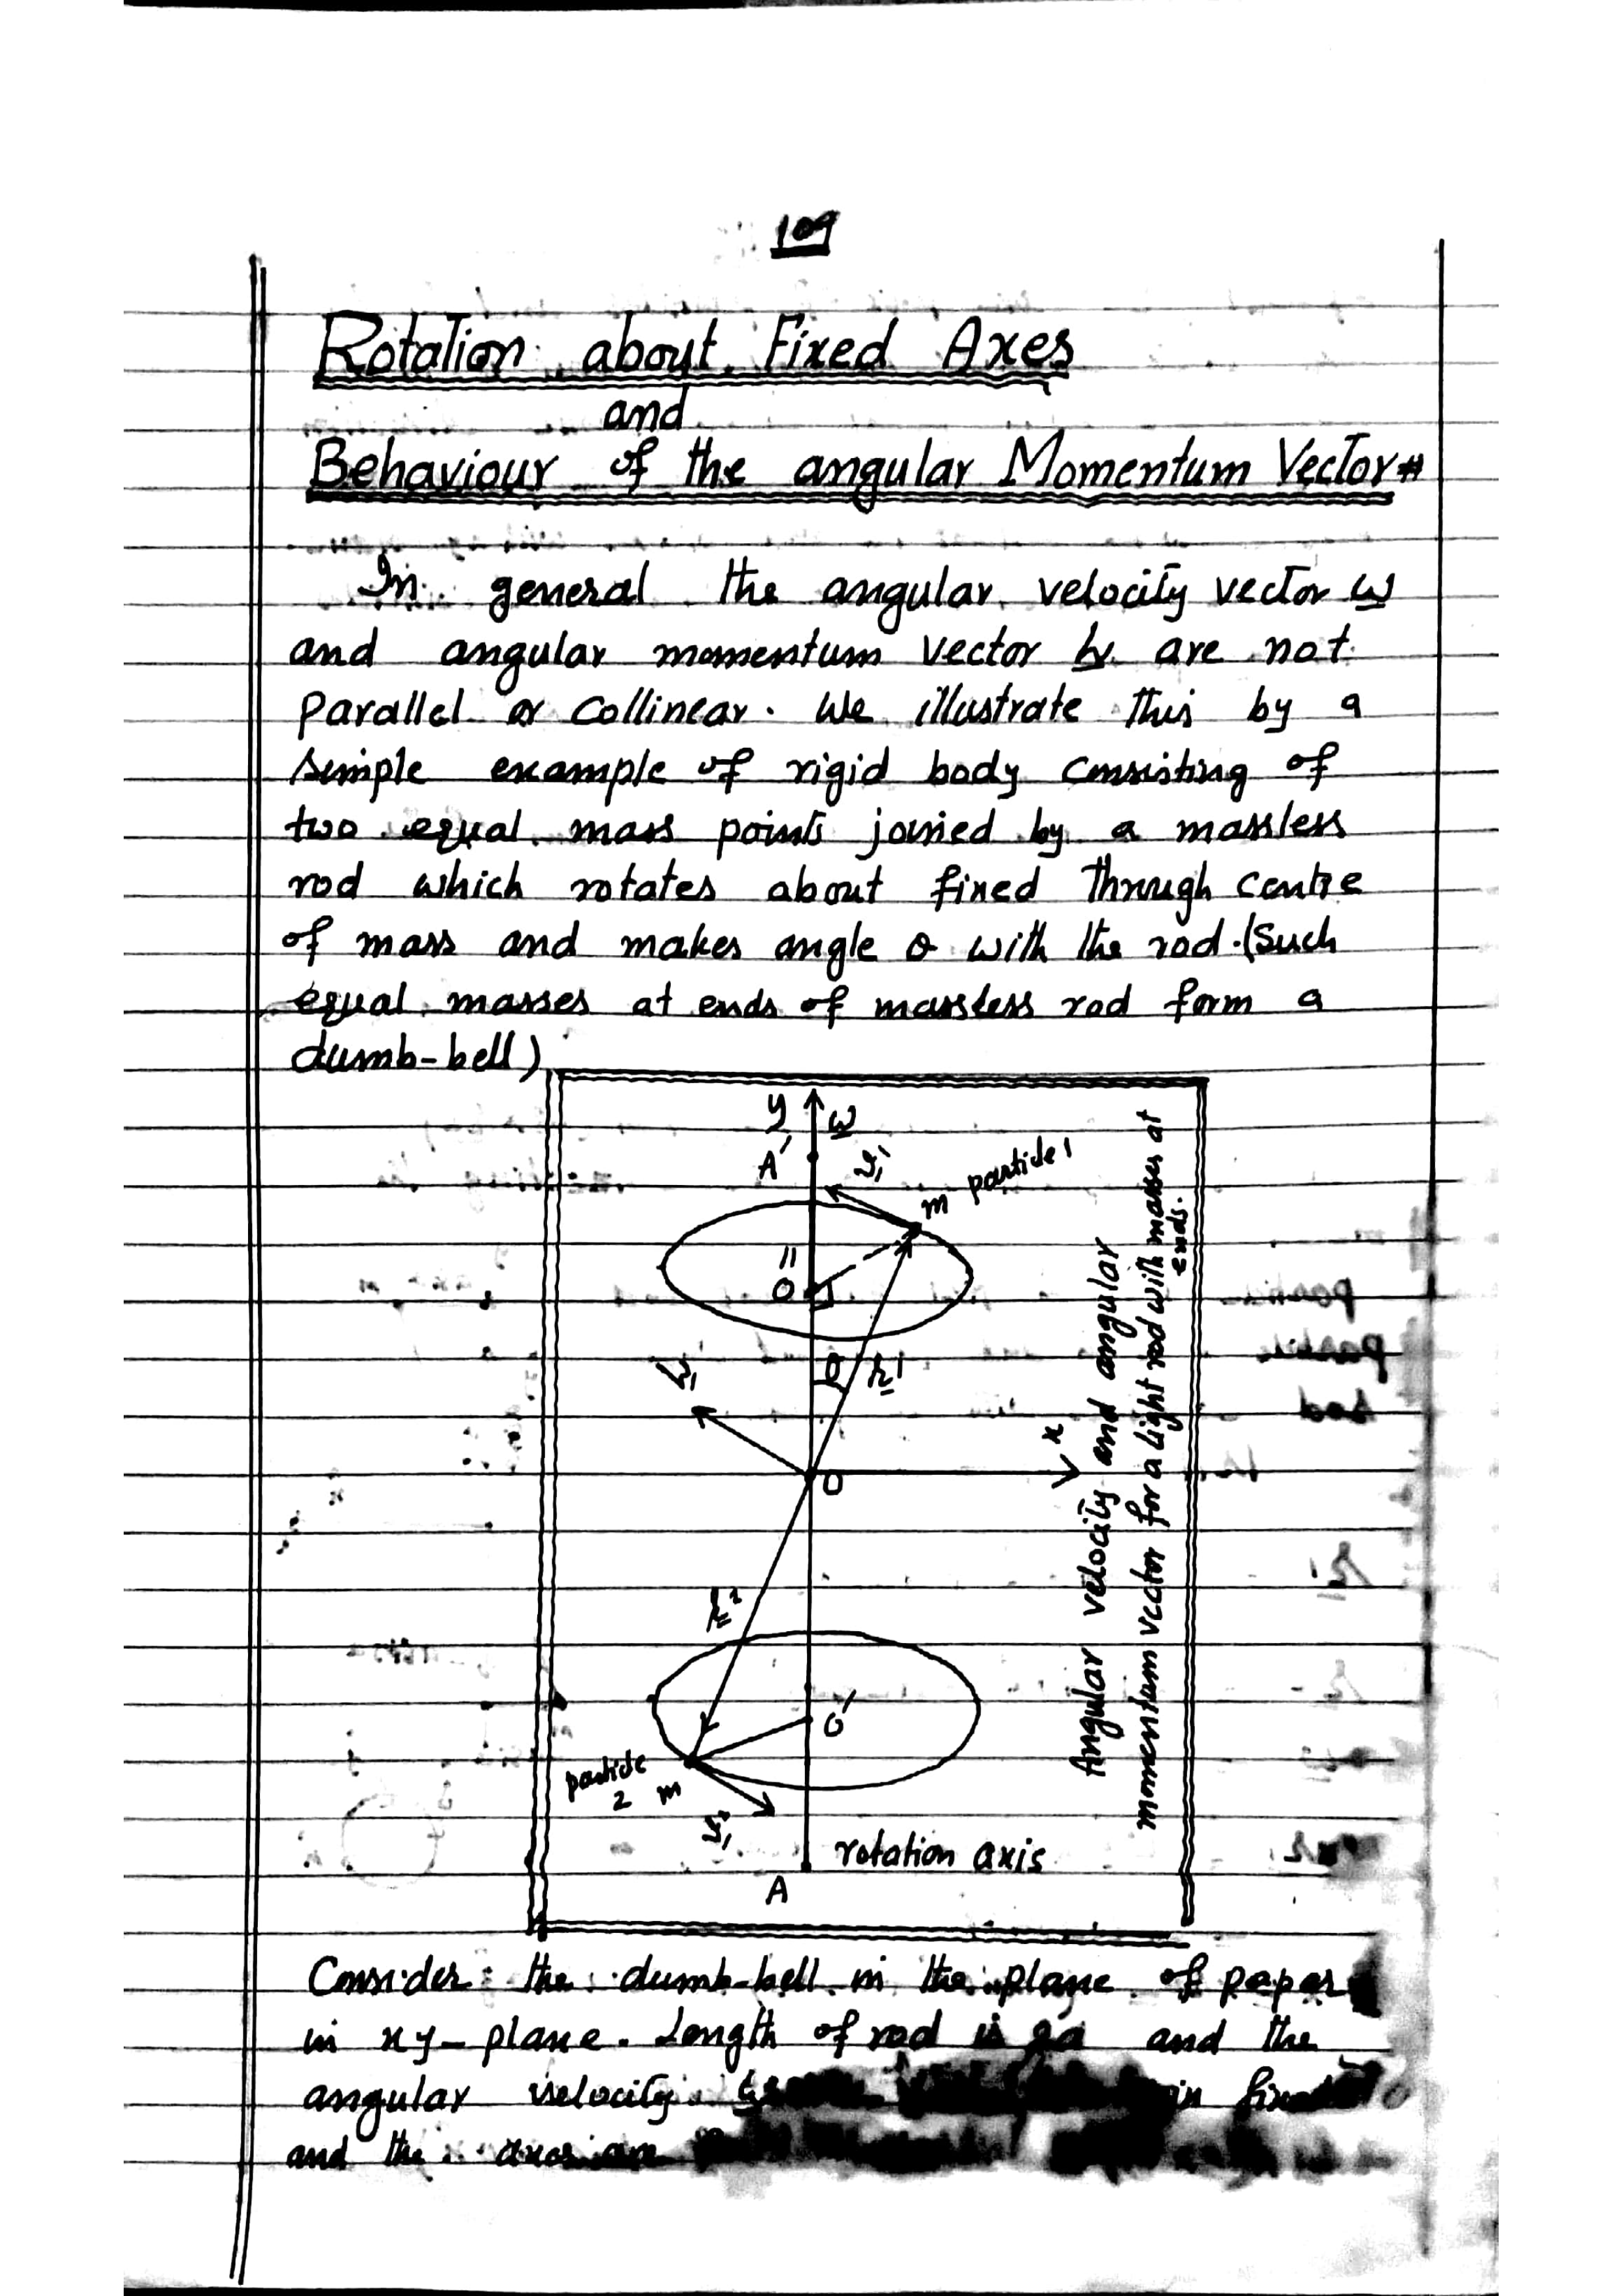 109
Rotation about Fixed Axes
and
Behaviour of the angular Momentum Vector #
In general the angular velocity vector ω
and angular momentum vector L are not
parallel or collinear. We illustrate this by a
simple example of rigid body consisting of
two equal mass points joined by a massless
rod which rotates about fixed through centre
of mass and makes angle θ with the rod. (Such
equal masses at ends of massless rod form a
dumb-bell)
y ω
A′
v₁
m particle 1
O″
θ r¹
L₁
x
O
r²
O′
particle
2 m
v₂
rotation axis
A
Angular velocity and angular
momentum vector for a light rod with masses at
ends.
Consider the dumb-bell in the plane of paper
in xy-plane. Length of rod is 2a and the
angular velocity in fixed
and the axes are